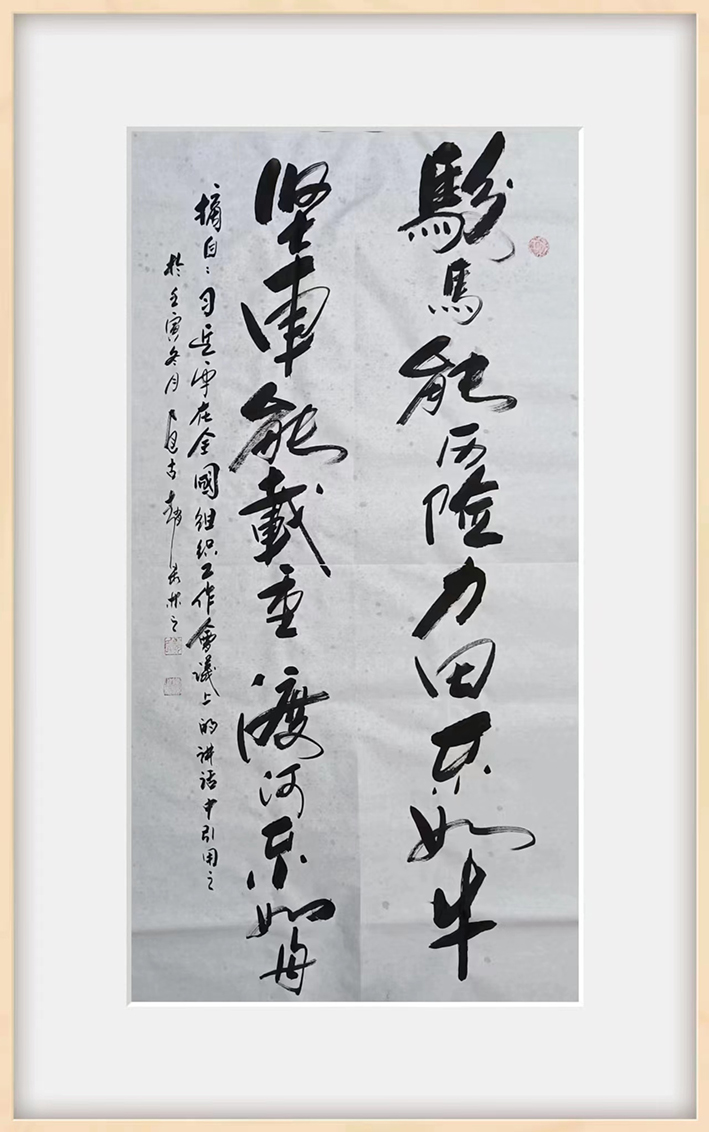 駿馬能历险力田不如牛
坚車能載重渡河不如舟
摘自：习近平在全國组织工作會議上的讲话中引用之
於壬寅冬月